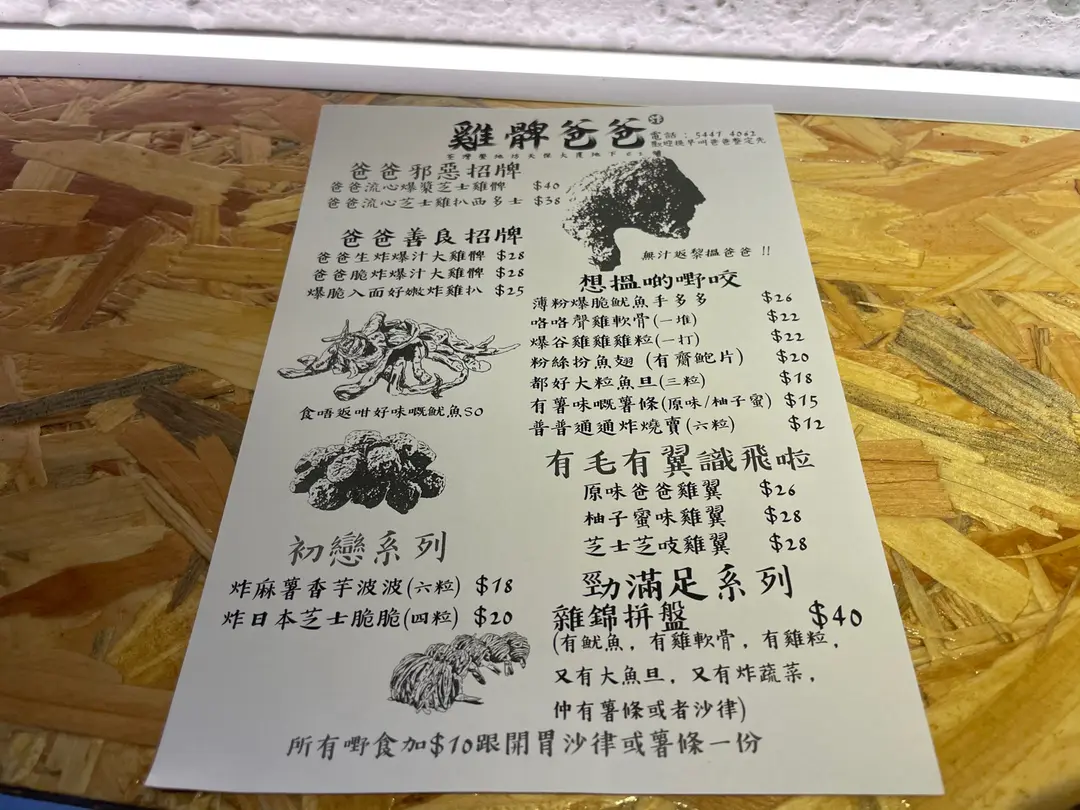 雞髀爸爸
電話：5441 4062
歡迎提早叫爸爸整定先
爸爸邪惡招牌
爸爸流心爆漿芝士雞髀 $40
爸爸流心芝士雞扒西多士 $38
爸爸善良招牌
爸爸生炸爆汁大雞髀 $28
爸爸脆炸爆汁大雞髀 $28
爆脆入面好嫩炸雞扒 $25
食唔返咁好味嘅魷魚SO
初戀系列
炸麻薯香芋波波(六粒) $18
炸日本芝士脆脆(四粒) $20
無汁返黎搵爸爸 !!
想搵啲嘢咬
薄粉爆脆魷魚手多多 $26
咯咯聲雞軟骨(一堆) $22
爆谷雞雞雞粒(一打) $22
粉絲扮魚翅 (有齋鮑片) $20
都好大粒魚旦(三粒) $18
有薯味嘅薯條(原味/柚子蜜) $15
普普通通炸燒賣(六粒) $12
有毛有翼識飛啦
原味爸爸雞翼 $26
柚子蜜味雞翼 $28
芝士芝吱雞翼 $28
勁滿足系列
雜錦拼盤 $40
(有魷魚，有雞軟骨，有雞粒，
又有大魚旦，又有炸蔬菜，
仲有薯條或者沙律)
所有嘢食加$10跟開胃沙律或薯條一份